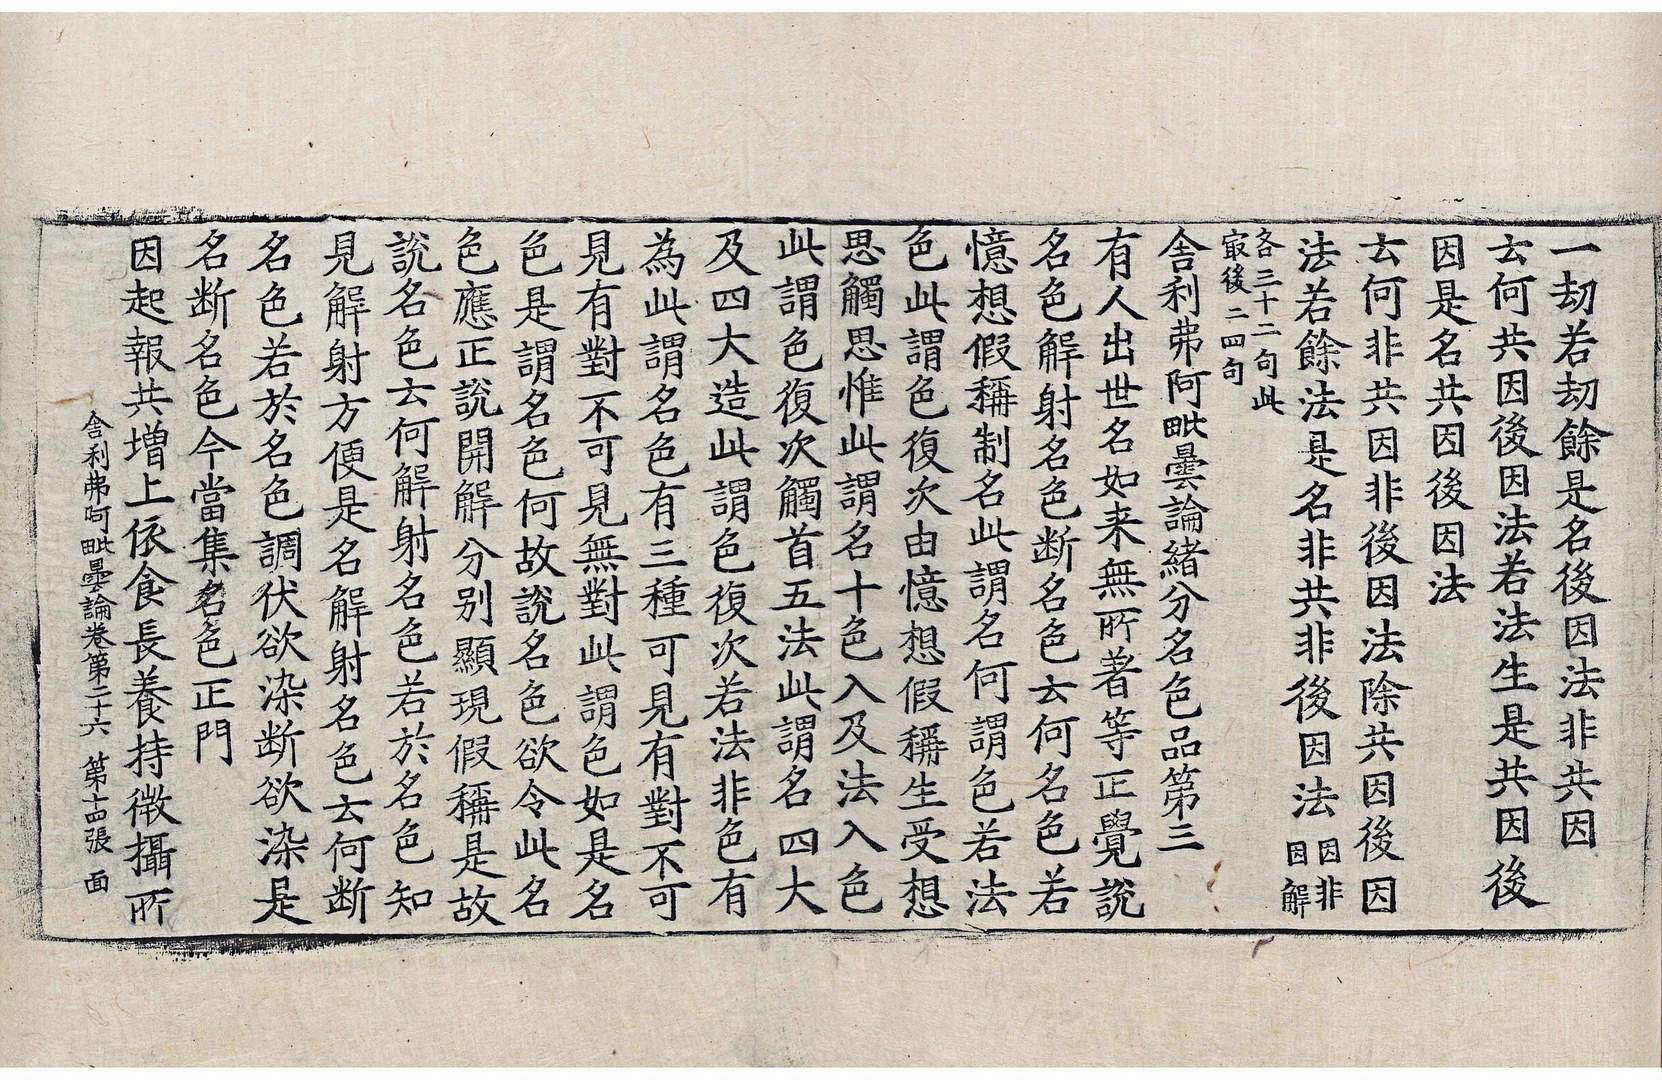 一劫若劫餘是名後因法非共因
去何共因後因法若法生是共因後
因是名共因後因法
去何非共因非後因法除共因後因
法若餘法是名非共非後因法因非
因解
各三十二句此
㝡後二四句
舍利弗阿毗曇論緒分名色品第三
有人出世名如来無所著等正覺說
名色解射名色断名色去何名色若
憶想假稱制名此謂名何謂色若法
色此謂色復次由憶想假稱生受想
思觸思惟此謂名十色入及法入色
此謂色復次觸首五法此謂名四大
及四大造此謂色復次若法非色有
為此謂名色有三種可見有對不可
見有對不可見無對此謂色如是名
色是謂名色何故說名色欲令此名
色應正說開解分別顯現假稱是故
說名色去何解射名色若於名色知
見解射方便是名解射名色去何断
名色若於名色調伏欲染断欲染是
名断名色今當集名色正門
因起報共增上依食長養持微攝所
舍利弗阿毗曇論卷第二十六 第十四張 面